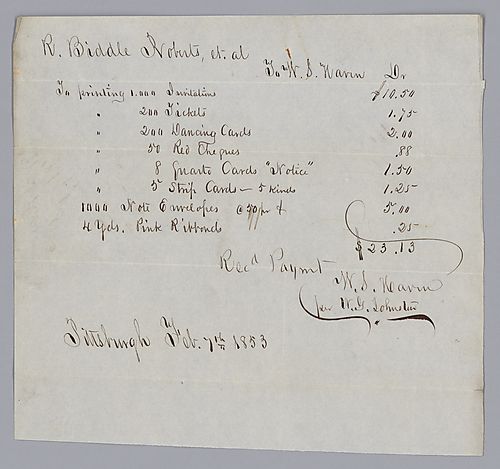 R. Biddle Roberts, et. al
To W. S. Haven Dr
To printing 1.000 Invitations $10.50
" 200 Tickets 1.75
" 200 Dancing Cards 2.00
" 50 Red Cheques .88
" 8 Quarto Cards "Notice" 1.50
" 5 Strip Cards – 5 kinds 1.25
1000 Note Envelopes @ 50 pr 5.00
4 Yds. Pink Ribbonds .25
$23.13
Recd Paymt
W. S. Haven
per W. G. Johnston
Pittsburgh Feb. 7th 1853